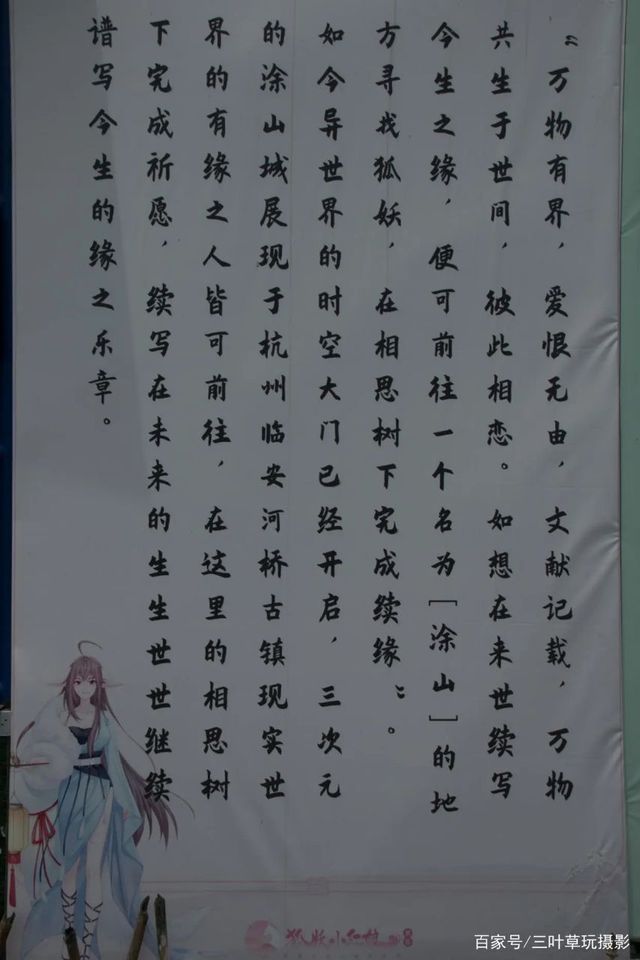 “万物有界，爱恨无由，文献记载，万物
共生于世间，彼此相恋。如想在来世续写
今生之缘，便可前往一个名为[涂山]的地
方寻找狐妖，在相思树下完成续缘”。
如今异世界的时空大门已经开启，三次元
的涂山城展现于杭州临安河桥古镇现实世
界的有缘之人皆可前往，在这里的相思树
下完成祈愿，续写在未来的生生世世继续
谱写今生的缘之乐章。
狐妖小红娘
百家号/三叶草玩摄影